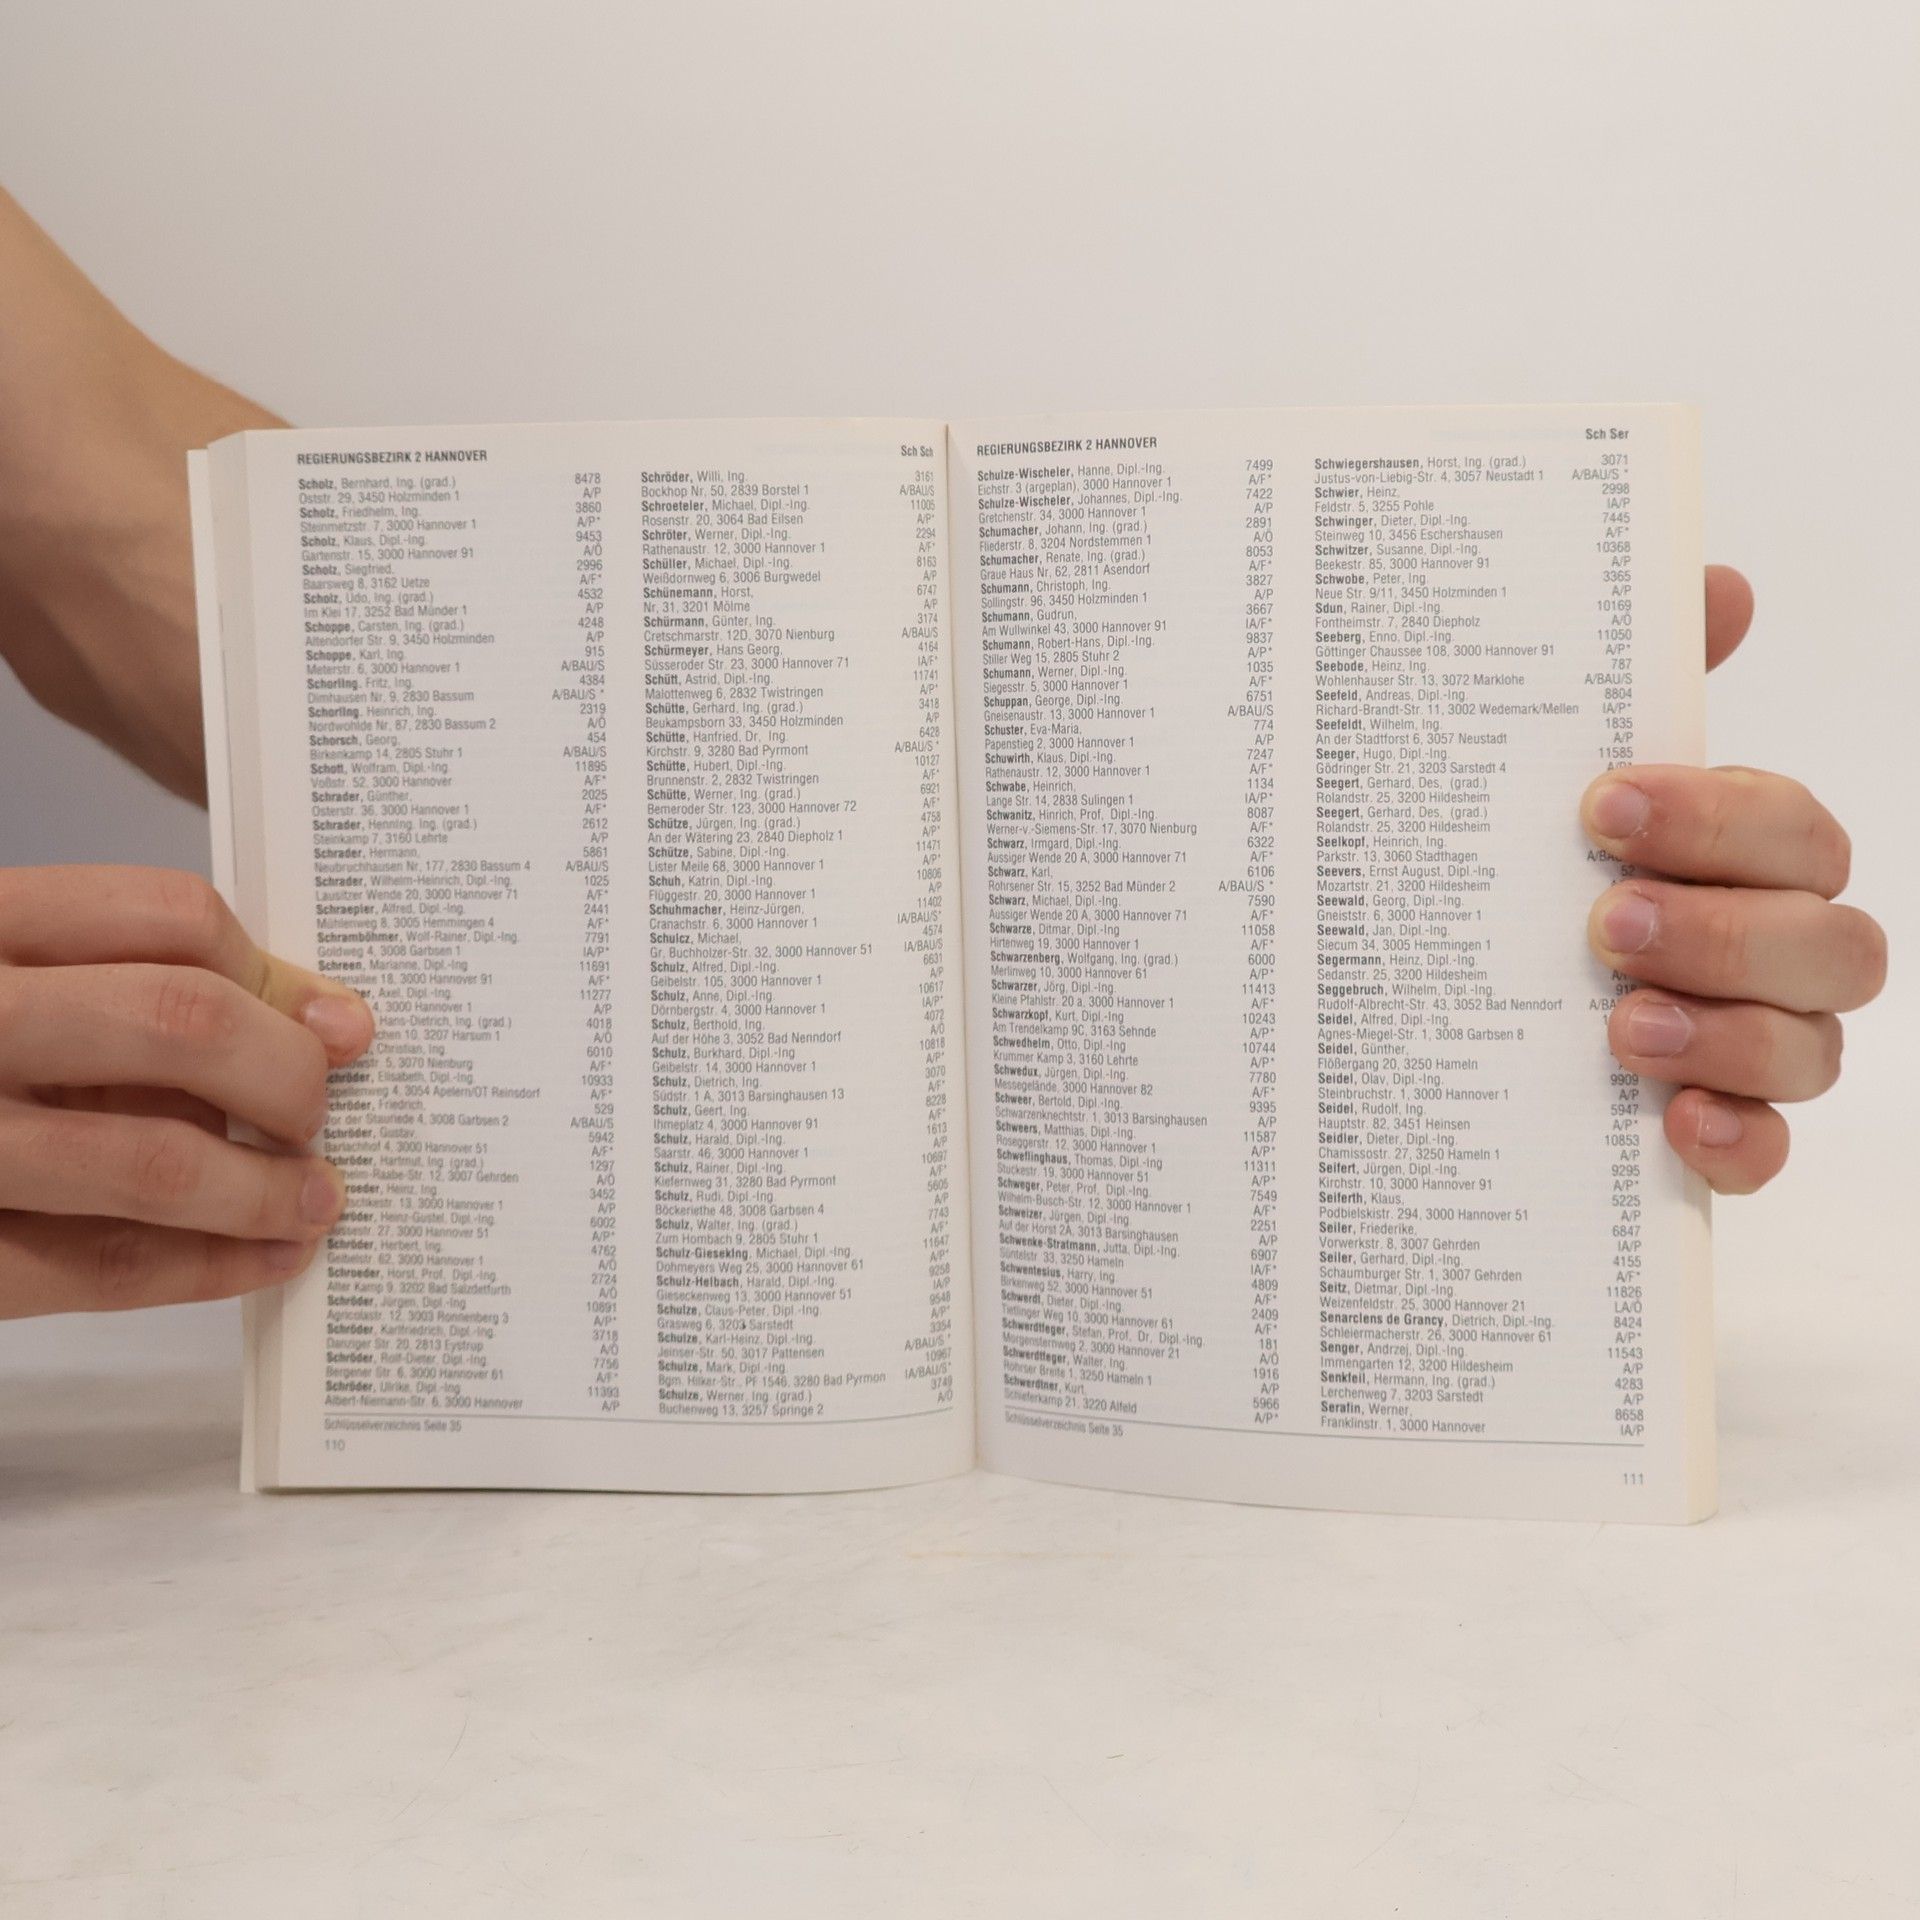 REGIERUNGSBEZIRK 2 HANNOVER
Sch Sch
Scholz, Bernhard, Ing. (grad.) 8478
Oststr. 29, 3450 Holzminden 1 A/P
Scholz, Friedhelm, Ing. 3860
Steinmetzstr. 7, 3000 Hannover 1 A/P*
Scholz, Klaus, Dipl.-Ing. 9453
Gartenstr. 15, 3000 Hannover 91 A/Ö
Scholz, Siegfried, 2996
Baarsweg 8, 3162 Uetze A/F*
Scholz, Udo, Ing. (grad.) 4532
Im Klei 17, 3252 Bad Münder 1 A/P
Schoppe, Carsten, Ing. (grad.) 4248
Altendorfer Str. 9, 3450 Holzminden A/P
Schoppe, Karl, Ing. 915
Meterstr. 6, 3000 Hannover 1 A/BAU/S
Schorling, Fritz, Ing. 4384
Dimhausen Nr. 9, 2830 Bassum A/BAU/S *
Schorling, Heinrich, Ing. 2319
Nordwohlde Nr. 87, 2830 Bassum 2 A/Ö
Schorsch, Georg, 454
Birkenkamp 14, 2805 Stuhr 1 A/BAU/S
Schott, Wolfram, Dipl.-Ing. 11895
Voßstr. 52, 3000 Hannover A/F*
Schrader, Günther, 2025
Osterstr. 36, 3000 Hannover 1 A/F*
Schrader, Henning, Ing. (grad.) 2612
Steinkamp 7, 3160 Lehrte A/P
Schrader, Hermann, 5861
Neubruchhausen Nr. 177, 2830 Bassum 4 A/BAU/S
Schrader, Wilhelm-Heinrich, Dipl.-Ing. 1025
Lausitzer Wende 20, 3000 Hannover 71 A/F*
Schraepler, Alfred, Dipl.-Ing. 2441
Mühlenweg 8, 3005 Hemmingen 4 A/F*
Schramböhmer, Wolf-Rainer, Dipl.-Ing. 7791
Goldweg 4, 3008 Garbsen 1 IA/P*
Schreen, Marianne, Dipl.-Ing 11691
18, 3000 Hannover 91 A/F*
Axel, Dipl.-Ing. 11277
4, 3000 Hannover 1 A/P
Hans-Dietrich, Ing. (grad.) 4018
10, 3207 Harsum 1 A/Ö
Christian, Ing. 6010
5, 3070 Nienburg A/F*
Schröder, Elisabeth, Dipl.-Ing. 10933
4, 3054 Apelern/OT Reinsdorf A/F*
Schröder, Friedrich, 529
Vor der Staunede 4, 3008 Garbsen 2 A/BAU/S
Schröder, Gustav, 5942
4, 3000 Hannover 51 A/F*
Schröder, Hartmut, Ing. (grad.) 1297
12, 3007 Gehrden A/Ö
Heinz, Ing. 3452
13, 3000 Hannover 1 A/P
Heinz-Gustel, Dipl.-Ing. 6002
27, 3000 Hannover 51 A/P*
Schröder, Herbert, Ing. 4762
Geibelstr. 62, 3000 Hannover 1 A/Ö
Schroeder, Horst, Prof. Dipl.-Ing. 2724
Alter Kamp 9, 3202 Bad Salzdetfurth A/Ö
Schröder, Jürgen, Dipl.-Ing 10891
Agricolastr. 12, 3003 Ronnenberg 3 A/P*
Schröder, Karlfriedrich, Dipl.-Ing. 3718
Danziger Str. 20, 2813 Eystrup A/Ö
Schröder, Rolf-Dieter, Dipl.-Ing. 7756
Bergener Str. 6, 3000 Hannover 61 A/F*
Schröder, Ulrike, Dipl.-Ing 11393
Albert-Niemann-Str. 6, 3000 Hannover A/P
Schröder, Willi, Ing. 3161
Bockhop Nr. 50, 2839 Borstel 1 A/BAU/S
Schroeteler, Michael, Dipl.-Ing. 11005
Rosenstr. 20, 3064 Bad Eilsen A/P*
Schröter, Werner, Dipl.-Ing. 2294
Rathenaustr. 12, 3000 Hannover 1 A/F*
Schüller, Michael, Dipl.-Ing. 8163
Weißdornweg 6, 3006 Burgwedel A/P
Schünemann, Horst, 6747
Nr. 31, 3201 Mölme A/P
Schürmann, Günter, Ing. 3174
Cretschmarstr. 12D, 3070 Nienburg A/BAU/S
Schürmeyer, Hans Georg, 4164
Süsseroder Str. 23, 3000 Hannover 71 IA/F*
Schütt, Astrid, Dipl.-Ing. 11741
Malottenweg 6, 2832 Twistringen A/P*
Schütte, Gerhard, Ing. (grad.) 3418
Beukampsborn 33, 3450 Holzminden A/P
Schütte, Hanfried, Dr. Ing. 6428
Kirchstr. 9, 3280 Bad Pyrmont A/BAU/S *
Schütte, Hubert, Dipl.-Ing. 10127
Brunnenstr. 2, 2832 Twistringen A/F*
Schütte, Werner, Ing. (grad.) 6921
Bemeroder Str. 123, 3000 Hannover 72 A/F*
Schütze, Jürgen, Ing. (grad.) 4758
An der Wätering 23, 2840 Diepholz 1 A/P*
Schütze, Sabine, Dipl.-Ing. 11471
Lister Meile 68, 3000 Hannover 1 A/P*
Schuh, Katrin, Dipl.-Ing. 10806
Flüggestr. 20, 3000 Hannover 1 A/P
Schuhmacher, Heinz-Jürgen, 11402
Cranachstr. 6, 3000 Hannover 1 IA/BAU/S*
Schulcz, Michael, 4574
Gr. Buchholzer-Str. 32, 3000 Hannover 51 IA/BAU/S
Schulz, Alfred, Dipl.-Ing. 6631
Geibelstr. 105, 3000 Hannover 1 A/P
Schulz, Anne, Dipl.-Ing. 10617
Dörnbergstr. 4, 3000 Hannover 1 IA/P*
Schulz, Berthold, Ing. 4072
Auf der Höhe 3, 3052 Bad Nenndorf A/Ö
Schulz, Burkhard, Dipl.-Ing 10818
Geibelstr. 14, 3000 Hannover 1 A/P*
Schulz, Dietrich, Ing. 3070
Südstr. 1 A, 3013 Barsinghausen 13 A/F*
Schulz, Geert, Ing. 8228
Ihmeplatz 4, 3000 Hannover 91 A/F*
Schulz, Harald, Dipl.-Ing. 1613
Saarstr. 46, 3000 Hannover 1 A/P
Schulz, Rainer, Dipl.-Ing. 10697
Kiefernweg 31, 3280 Bad Pyrmont A/F*
Schulz, Rudi, Dipl.-Ing. 5605
Böckeriethe 48, 3008 Garbsen 4 A/P
Schulz, Walter, Ing. (grad.) 7743
Zum Hombach 9, 2805 Stuhr 1 A/F*
Schulz-Gieseking, Michael, Dipl.-Ing. 11647
Dohmeyers Weg 25, 3000 Hannover 61 A/P*
Schulz-Helbach, Harald, Dipl.-Ing. 9258
Gieseckenweg 13, 3000 Hannover 51 IA/P
Schulze, Claus-Peter, Dipl.-Ing. 9548
Grasweg 6, 3203 Sarstedt A/P*
Schulze, Karl-Heinz, Dipl.-Ing. 3354
Jeinser-Str. 50, 3017 Pattensen A/BAU/S *
Schulze, Mark, Dipl.-Ing. 10967
Bgm. Hilker-Str., PF 1546, 3280 Bad Pyrmon IA/BAU/S*
Schulze, Werner, Ing. (grad.) 3749
Buchenweg 13, 3257 Springe 2 A/Ö
Schlüsselverzeichnis Seite 35
110
REGIERUNGSBEZIRK 2 HANNOVER
Sch Ser
Schulze-Wischeler, Hanne, Dipl.-Ing. 7499
Eichstr. 3 (argeplan), 3000 Hannover 1 A/F*
Schulze-Wischeler, Johannes, Dipl.-Ing. 7422
Gretchenstr. 34, 3000 Hannover 1 A/P
Schumacher, Johann, Ing. (grad.) 2891
Fliederstr. 8, 3204 Nordstemmen 1 A/Ö
Schumacher, Renate, Ing. (grad.) 8053
Graue Haus Nr. 62, 2811 Asendorf A/F*
Schumann, Christoph, Ing. 3827
Sollingstr. 96, 3450 Holzminden 1 A/P
Schumann, Gudrun, 3667
Am Wullwinkel 43, 3000 Hannover 91 IA/F*
Schumann, Robert-Hans, Dipl.-Ing. 9837
Stiller Weg 15, 2805 Stuhr 2 A/P*
Schumann, Werner, Dipl.-Ing. 1035
Siegesstr. 5, 3000 Hannover 1 A/F*
Schuppan, George, Dipl.-Ing. 6751
Gneisenaustr. 13, 3000 Hannover 1 A/BAU/S
Schuster, Eva-Maria, 774
Papenstieg 2, 3000 Hannover 1 A/P
Schuwirth, Klaus, Dipl.-Ing. 7247
Rathenaustr. 12, 3000 Hannover 1 A/F*
Schwabe, Heinrich, 1134
Lange Str. 14, 2838 Sulingen 1 IA/P*
Schwanitz, Hinrich, Prof. Dipl.-Ing. 8087
Werner-v.-Siemens-Str. 17, 3070 Nienburg A/F*
Schwarz, Irmgard, Dipl.-Ing. 6322
Aussiger Wende 20 A, 3000 Hannover 71 A/F*
Schwarz, Karl, 6106
Rohrsener Str. 15, 3252 Bad Münder 2 A/BAU/S *
Schwarz, Michael, Dipl.-Ing. 7590
Aussiger Wende 20 A, 3000 Hannover 71 A/F*
Schwarze, Ditmar, Dipl-Ing. 11058
Hirtenweg 19, 3000 Hannover 1 A/F*
Schwarzenberg, Wolfgang, Ing. (grad.) 6000
Merlinweg 10, 3000 Hannover 61 A/P*
Schwarzer, Jörg, Dipl.-Ing. 11413
Kleine Pfahlstr. 20 a, 3000 Hannover 1 A/F*
Schwarzkopf, Kurt, Dipl.-Ing 10243
Am Trendelkamp 9C, 3163 Sehnde A/P*
Schwedhelm, Otto, Dipl.-Ing 10744
Krummer Kamp 3, 3160 Lehrte A/P*
Schwedux, Jürgen, Dipl.-Ing. 7780
Messegelände, 3000 Hannover 82 A/F*
Schweer, Bertold, Dipl.-Ing. 9395
Schwarzenknechtstr. 1, 3013 Barsinghausen A/P
Schweers, Matthias, Dipl.-Ing. 11587
Roseggerstr. 12, 3000 Hannover 1 A/P*
Schweflinghaus, Thomas, Dipl.-Ing 11311
Stuckestr. 19, 3000 Hannover 51 A/P*
Schweger, Peter, Prof. Dipl.-Ing. 7549
Wilhelm-Busch-Str. 12, 3000 Hannover 1 A/F*
Schweizer, Jürgen, Dipl.-Ing. 2251
Auf der Horst 2A, 3013 Barsinghausen A/P
Schwenke-Stratmann, Jutta, Dipl.-Ing. 6907
Süntelstr. 33, 3250 Hameln IA/F*
Schwentesius, Harry, Ing. 4809
Birkenweg 52, 3000 Hannover 51 A/F*
Schwerdt, Dieter, Dipl.-Ing. 2409
Tietlinger Weg 10, 3000 Hannover 61 A/F*
Schwerdtfeger, Stefan, Prof. Dr. Dipl.-Ing. 181
Morgensternweg 2, 3000 Hannover 21 A/Ö
Schwerdtfeger, Walter, Ing. 1916
Rohrser Breite 1, 3250 Hameln 1 A/P
Schwerdtner, Kurt, 5966
Schieferkamp 21, 3220 Alfeld A/P*
Schwiegershausen, Horst, Ing. (grad.) 3071
Justus-von-Liebig-Str. 4, 3057 Neustadt 1 A/BAU/S *
Schwier, Heinz, 2998
Feldstr. 5, 3255 Pohle IA/P
Schwinger, Dieter, Dipl.-Ing. 7445
Steinweg 10, 3456 Eschershausen A/F*
Schwitzer, Susanne, Dipl.-Ing. 10368
Beekestr. 85, 3000 Hannover 91 A/P
Schwobe, Peter, Ing. 3365
Neue Str. 9/11, 3450 Holzminden 1 A/P
Sdun, Rainer, Dipl.-Ing. 10169
Fontheimstr. 7, 2840 Diepholz A/Ö
Seeberg, Enno, Dipl.-Ing. 11050
Göttinger Chaussee 108, 3000 Hannover 91 A/P*
Seebode, Heinz, Ing. 787
Wohlenhauser Str. 13, 3072 Marklohe A/BAU/S
Seefeld, Andreas, Dipl.-Ing. 8804
Richard-Brandt-Str. 11, 3002 Wedemark/Mellen IA/P*
Seefeldt, Wilhelm, Ing. 1835
An der Stadtforst 6, 3057 Neustadt A/P
Seeger, Hugo, Dipl.-Ing. 11585
Gödringer Str. 21, 3203 Sarstedt 4 A/P*
Seegert, Gerhard, Des. (grad.)
Rolandstr. 25, 3200 Hildesheim
Seegert, Gerhard, Des. (grad.)
Rolandstr. 25, 3200 Hildesheim
Seelkopf, Heinrich, Ing.
Parkstr. 13, 3060 Stadthagen
Seevers, Ernst August, Dipl.-Ing.
Mozartstr. 21, 3200 Hildesheim
Seewald, Georg, Dipl.-Ing.
Gneiststr. 6, 3000 Hannover 1
Seewald, Jan, Dipl.-Ing.
Siecum 34, 3005 Hemmingen 1
Segermann, Heinz, Dipl.-Ing.
Sedanstr. 25, 3200 Hildesheim
Seggebruch, Wilhelm, Dipl.-Ing.
Rudolf-Albrecht-Str. 43, 3052 Bad Nenndorf
Seidel, Alfred, Dipl.-Ing.
Agnes-Miegel-Str. 1, 3008 Garbsen 8
Seidel, Günther,
Flößergang 20, 3250 Hameln
Seidel, Olav, Dipl.-Ing. 9909
Steinbruchstr. 1, 3000 Hannover 1 A/P
Seidel, Rudolf, Ing. 5947
Hauptstr. 82, 3451 Heinsen A/P*
Seidler, Dieter, Dipl.-Ing. 10853
Chamissostr. 27, 3250 Hameln 1 A/P
Seifert, Jürgen, Dipl.-Ing. 9295
Kirchstr. 10, 3000 Hannover 91 A/P*
Seiferth, Klaus, 5225
Podbielskistr. 294, 3000 Hannover 51 A/P
Seiler, Friederike, 6847
Vorwerkstr. 8, 3007 Gehrden IA/P
Seiler, Gerhard, Dipl.-Ing. 4155
Schaumburger Str. 1, 3007 Gehrden A/F*
Seitz, Dietmar, Dipl.-Ing. 11826
Weizenfeldstr. 25, 3000 Hannover 21 LA/Ö
Senarclens de Grancy, Dietrich, Dipl.-Ing. 8424
Schleiermacherstr. 26, 3000 Hannover 61 A/P*
Senger, Andrzej, Dipl.-Ing. 11543
Immengarten 12, 3200 Hildesheim A/P
Senkfeil, Hermann, Ing. (grad.) 4283
Lerchenweg 7, 3203 Sarstedt A/P
Serafin, Werner, 8658
Franklinstr. 1, 3000 Hannover IA/P
Schlüsselverzeichnis Seite 35
111